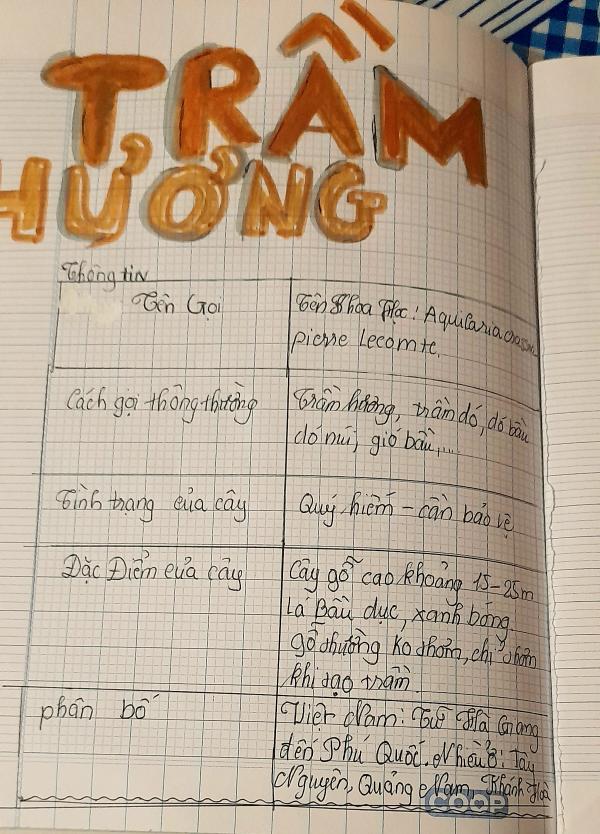 TRẦM
HƯƠNG
Thông tin
Tên Gọi
Tên Khoa Học: Aquilaria crassna
pierre Lecomte.
Cách gọi thông thường
Trầm hương, trầm dó, dó bầu
dó núi, gió bầu,...
Tình trạng của cây
Quý hiếm - cần bảo vệ
Đặc Điểm của cây
Cây gỗ cao khoảng 15-25m
Lá Bầu dục, xanh bóng
gỗ thường ko thơm, chỉ thơm
khi tạo trầm
phân bố
Việt Nam: Từ Hà Giang
đến Phú Quốc. Nhiều ở: Tây
Nguyên, Quảng Nam, Khánh Hoà
COOP